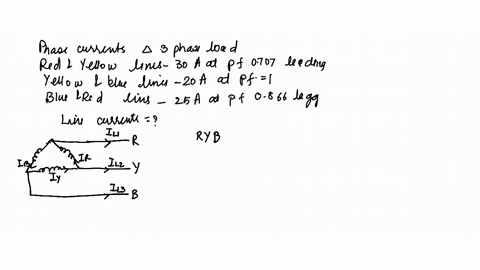 Phase currents Δ 3 phase load
Red & Yellow lines - 30 A at pf 0.707 leading
Yellow & blue lines - 20 A at pf = 1
Blue & Red lines - 25 A at pf 0.866 lagg
Line currents = ?
RYB
IL1 R
IB IR
IL2 Y
IY
IL3 B